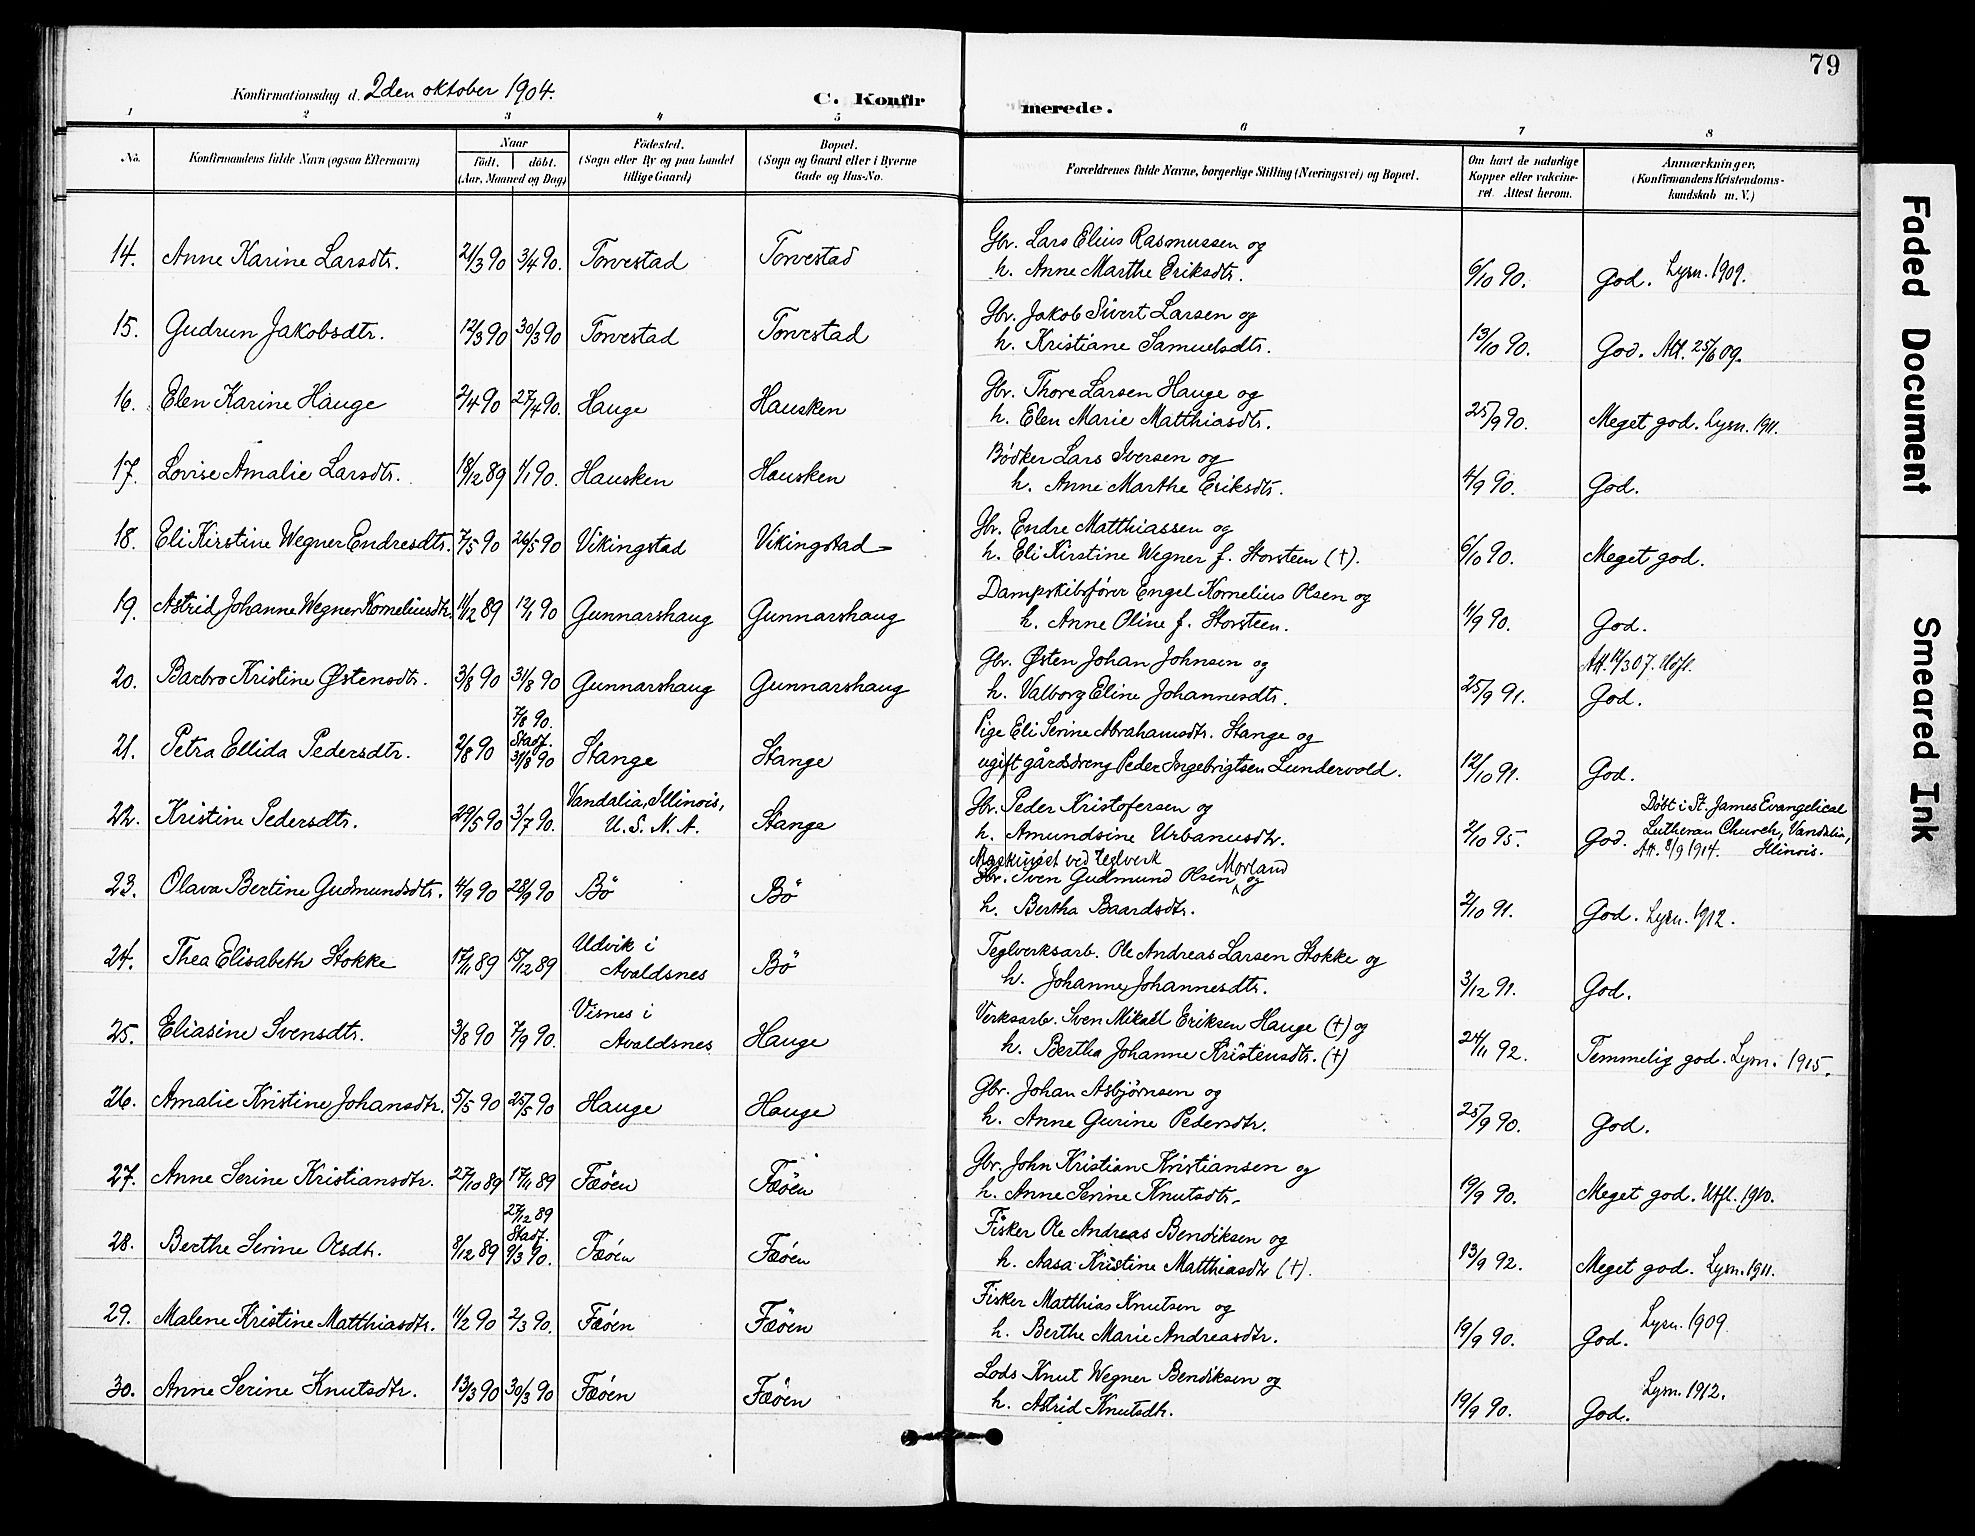 79
Konfirmationsdag d. 2den oktober 1904.
C. Konfirmerede.
1 2 3 4 5 6 7 8
No. Konfirmandens fulde Navn (ogsaa Efternavn) Naar födt. döbt. (Aar, Maaned og Dag) Födested. (Sogn eller By og paa Landet tillige Gaard) Bopæl. (Sogn og Gaard eller i Byerne Gade og Hus-No. Forældrenes fulde Navne, borgerlige Stilling (Næringsvei) og Bopæl. Om havt de naturlige Kopper eller vakcineret. Attest herom. Anmærkninger, (Konfirmandens Kristendomskundskab m. V.)
14. Anne Karine Larsdtr. 21/3 90 3/4 90. Torvestad Torvestad Gbr. Lars Elius Rasmussen og
h. Anne Marthe Eriksdtr. 6/10 90. God. Lysn. 1909.
15. Gudrun Jakobsdtr. 12/3 90 30/3 90 Torvestad Torvestad Gbr. Jakob Sivert Larsen og
h. Kristiane Samuelsdtr. 13/10 90. God. Att. 25/6 09.
16. Elen Karine Hauge 2/4 90 27/4 90. Hauge Hausken Gbr. Thore Larsen Hauge og
h. Elen Marie Matthiasdtr. 25/9 90. Meget god. Lysn. 1911.
17. Lovise Amalie Larsdtr. 18/12 89 1/1 90. Hausken Hausken Bødker Lars Iversen og
h. Anne Marthe Eriksdtr. 4/9 90. God.
18. Eli Kirstine Wegner Endresdtr. 7/5 90 26/5 90 Vikingstad Vikingstad Gbr. Endre Matthiassen og
h. Eli Kirstine Wegner f. Storsteen (†). 6/10 90. Meget god.
19. Astrid Johanne Wegner Korneliusdtr. 11/12 89 12/1 90 Gunnarshaug Gunnarshaug Dampskibsfører Engel Kornelius Olsen og
h. Anne Oline f. Storsteen. 11/9 90. God.
20. Barbro Kristine Østensdtr. 3/8 90 31/8 90 Gunnarshaug Gunnarshaug Gbr. Østen Johan Johnsen og Att. 14/3 07. Utfl.
h. Valborg Eline Johannesdtr. 25/9 91. God.
21. Petra Ellida Pedersdtr. 2/8 90 7/8 90. Stadf. 31/8 90 Stange Stange Pige Eli Serine Abrahamsdtr. Stange og
ugift gårdsdreng Peder Ingebrigtsen Lundervold. 12/10 91. God.
22. Kristine Pedersdtr. 29/5 90 3/7 90. Vandalia, Illinois, U. S. N. A. Stange Gbr. Peder Kristofersen og
h. Amundsine Urbanusdtr. 2/10 95. God. Döbt i St. James Evangelical Lutheran Church, Vandalia, Illinois. Att. 8/9 1914.
23. Olava Bertine Gudmundsdtr. 4/9 90 28/9 90 Bö Bö Maskinist ved teglverk
Gbr. Sven Gudmund Olsen Morland og
h. Bertha Baardsdtr. 2/10 91. God. Lysn. 1912.
24. Thea Elisabeth Stokke 17/11 89 15/12 89 Udvik i Avaldsnes Bö Teglverksarb. Ole Andreas Larsen Stokke og
h. Johanne Johannesdtr. 3/12 91. God.
25. Eliasine Svensdtr. 3/8 90 7/9 90. Visnes i Avaldsnes Hauge Verksarb. Sven Mikael Eriksen Hauge (†) og
h. Bertha Johanne Kristensdtr. (†) 24/11 92. Temmelig god. Lysn. 1915.
26. Amalie Kristine Johansdtr. 5/5 90 25/5 90 Hauge Hauge Gbr. Johan Asbjørnsen og
h. Anne Gurine Pedersdtr. 25/9 90. God.
27. Anne Serine Kristiansdtr. 27/10 89 17/11 89 Fæöen Fæöen Gbr. John Kristian Kristiansen og
h. Anne Serine Knutsdtr. 19/9 90. Meget god. Utfl. 1910.
28. Berthe Serine Olsdtr. 8/12 89 27/12 89 Stadf. 9/3 90. Fæöen Fæöen Fisker Ole Andreas Bendiksen og
h. Aasa Kristine Matthiasdtr (†). 13/9 92. Meget god. Lysn. 1911.
29. Malene Kristine Matthiasdtr. 11/2 90 2/3 90. Fæöen Fæöen Fisker Matthias Knutsen og
h. Berthe Marie Andreasdtr. 19/9 90. God. Lysn. 1909
30. Anne Serine Knutsdtr. 13/3 90 30/3 90 Fæöen Fæöen Lods Knut Wegner Bendiksen og
h. Astrid Knutsdtr. 19/9 90. God. Lysn. 1912.
Faded Document
Smeared Ink